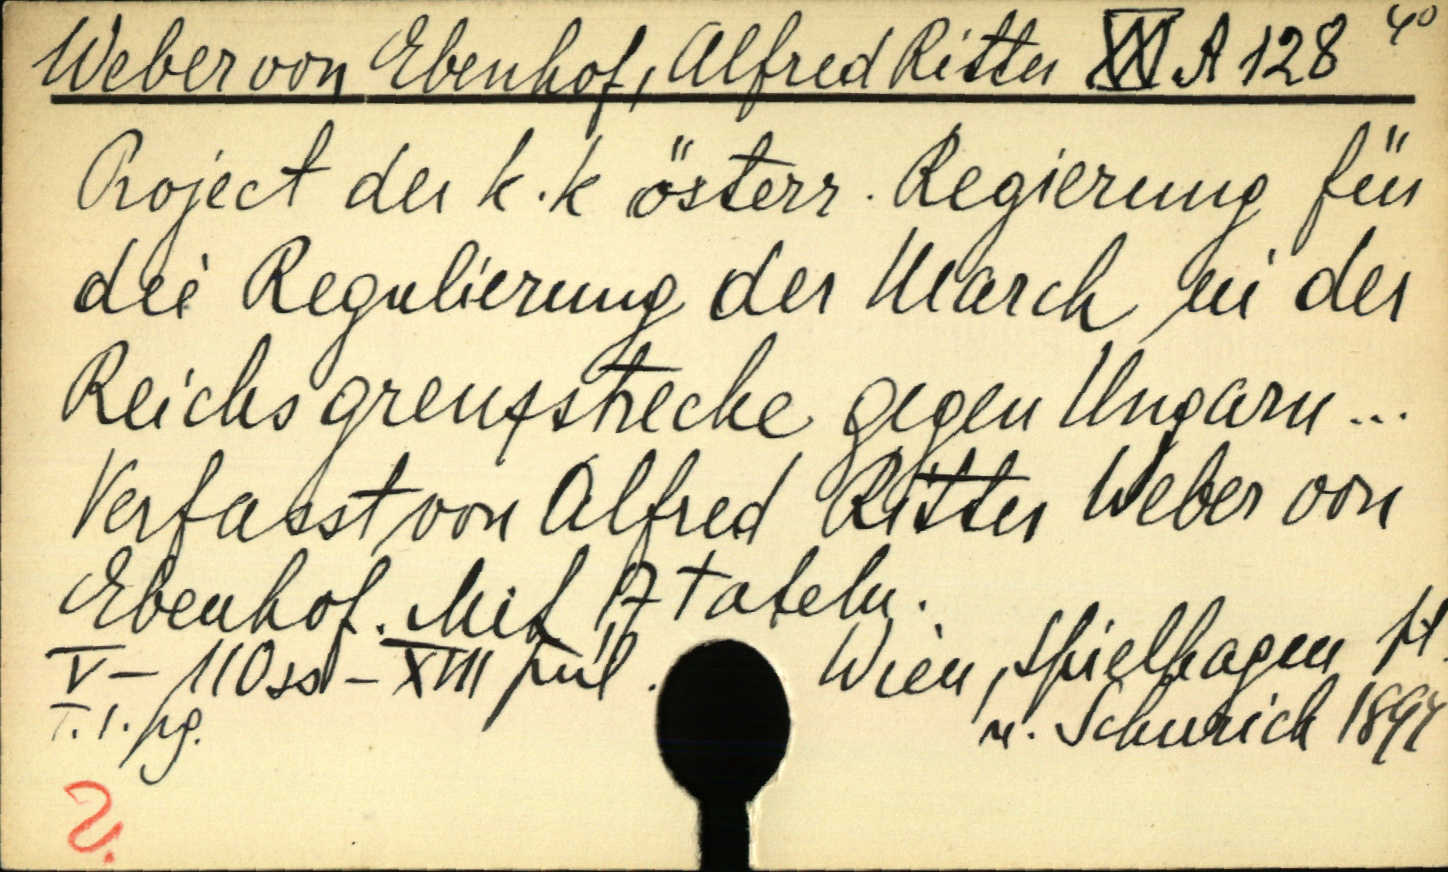 Weber von Ebenhof, Alfred Ritter XXI A 128 4°
Project der k.k österr. Regierung für
die Regulierung der March in der
Reichsgrenzstrecke gegen Ungarn...
Verfasst von Alfred Ritter Weber von
Ebenhof. Mit 17 tafeln.
V - 110 ss - XVIII
Wien, Spielhagen
u. Schurich 1894
T. 1. pg.